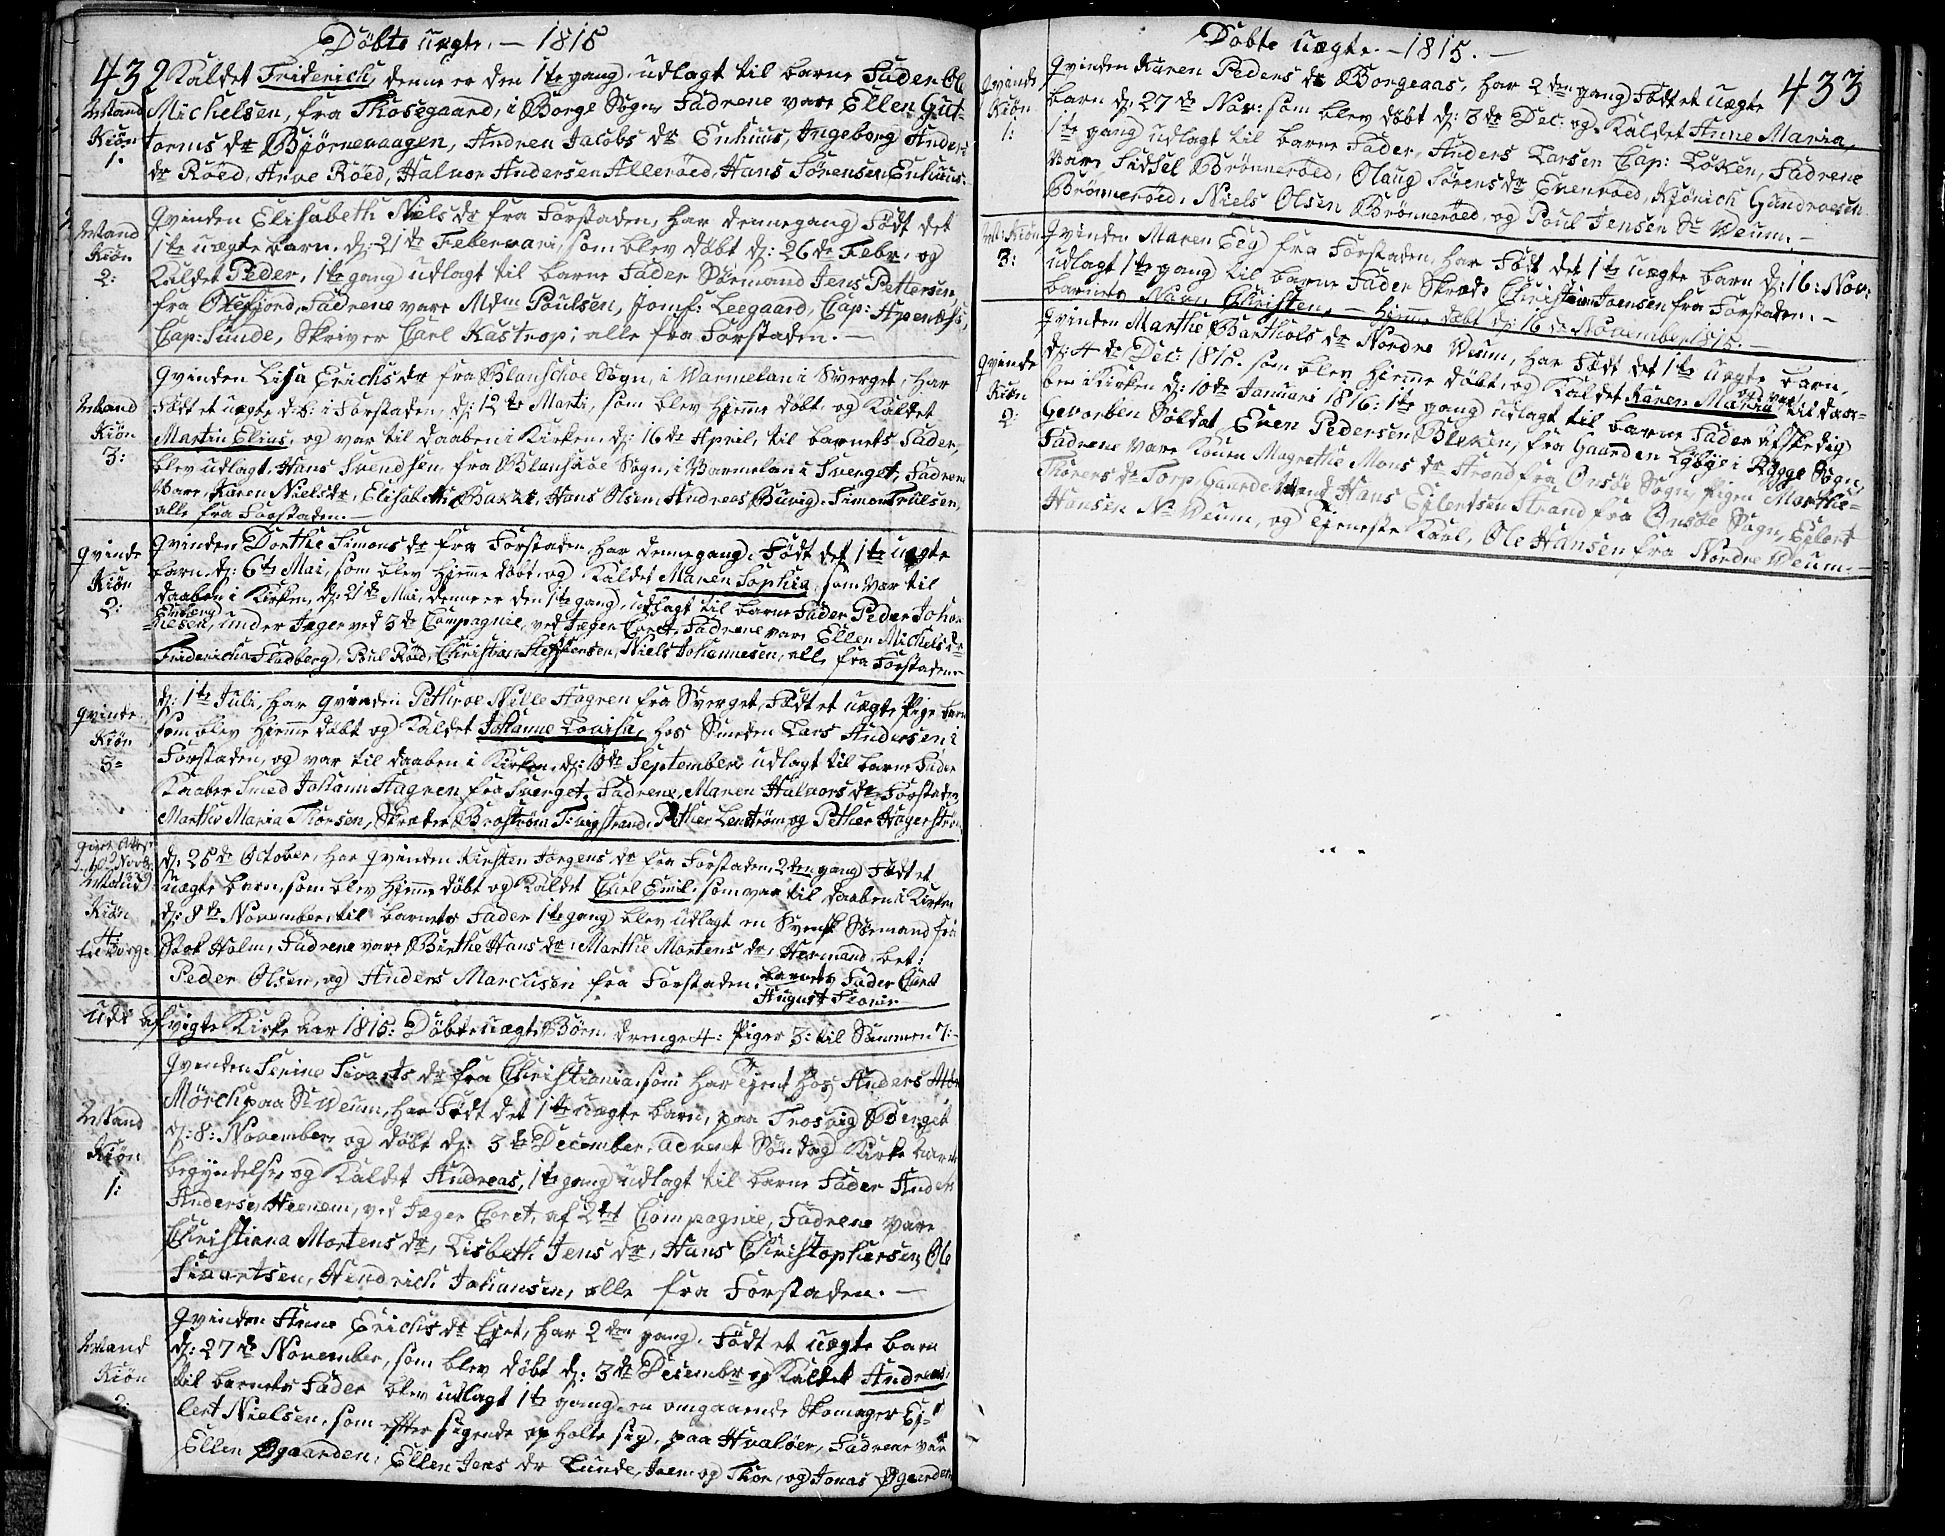 Döbte uægte. — 1815
432 Kaldet Friderich, denne er den 1te gang, udlagt til barne Fader Ole
Mand Michelsen, fra Thosegaard, i Borge Sogn, Fadrene vare Ellen Gut-
Kiøn torms dr Bjørnevaagen, Andrea Jacobs dr Enhuus, Ingeborg Anders
1. dr Röed, Arve Röed, Halvor Andersen Alleröed, Hans Sörensen Enhuus.
Mand Kiøn 2:
Qvinden Elisabeth Niels dr fra Forstaden, har dennegang Födt det
1te uægte barn, d: 21de Februari, som blev döbt d: 26de Febr. og
Kaldet Peder, 1te gang udlagt til barne Fader Sörmand Jens Pettersen
fra Fadrene vare Mdm Poulsen, Jomf: Leegaard, Cap:
Cap: Sunde, Skriver Carl Kastrop; alle fra Forstaden. —
Mand Kiøn 3:
Qvinden Lisa Erichs dr fra Blanschoe Sogn, i Warmelan i Sverget, har
Födt et uægte i Forstaden, d: 12te Marti, som blev hjemme döbt og Kaldet
Martin Elias, og var til daaben i Kirken, d: 16de April, til barnets Fader,
blev udlagt, Hans Svendsen, fra Blanskoe Sogn, i Varmelan i Sverget, Fadrene
Vare, Karen Nielsdr, Elisabeth Hans Olsen, Andreas Simon Trulsen,
alle fra Forstaden. —
Qvinde Kiøn 2:
Qvinden Dorthe Simons dr fra Forstaden har dennegang Födt det 1te uægte
barn, d: 6te Mai, som blev hjemme döbt, og Kaldet Maren Sophia, som var til
daaben i Kirken, d: 21de Mai, denne er den 1te gang, udlagt til barne Fader Peder Johan
nesen, under Jæger ved 3de Compagnie, ved Jæger Coret, Fadrene vare Ellen Michels dr
Friderica Stadberg, Poul Röed, Christian Steffensen, Niels Johannesen, alle fra Forstaden
Qvinde Kiøn 3=
d: 1te Juli, har qvinden Pethroe Nille Hagren fra Sverget, Födt et uægte Pige barn
som blev hjemme döbt og Kaldet Johanne Lovisa, hos Smeden Lars Andersen i
Forstaden, og var til daaben i Kirken, d: 10de September udlagt til barne Fader
Kaaber Smed Johann Hagren fra Sverget, Fadrene, Maren Halvors dr Forstaden
Marthe Maria Thorsen, Skræder Broström Pether Lenström og Pether Hagerström
Mand Kiøn 4:
d: 28de October, har qvinden Kirsten Jörgens dr fra Forstaden, 2den gang Födt et
uægte barn, som blev hjemme döbt og Kaldet Carl Emil, som var til daaben i Kirken
d: 8te November, til barnets Fader 1te gang blev udlagt en Svensk Sörmand fra
Stok Holm, Fadrene vare Birthe Hans dr, Marthe Mortens dr, Hermand Bet:
Peder Olsen, og Anders Marcusen fra Forstaden, barnets Fader Carl
August
Udi afvigte Kirke aar 1815: Döbte uægte Börn, drenge 4: Piger 3: til Sammen 7:—
Mand Kiøn 1:
Qvinden Serine Sivarts dr fra Christiania, som har Tjent hos Anders
Mörch paa Sr Weum, har Födt det 1te uægte barn, paa Trosvig Berget
d: 8: November, og döbt d: 3de December, advent Söndag Kirke aarets
begyndelse, og Kaldet Andreas, 1te gang udlagt til barne Fader Anders
Andersen ved Jæger Coret, af 2det Compagnie, Fadrene vare
Christiana Mortens dr, Lisbeth Jens dr, Hans Christophersen, Ole
Sivartsen, Hendrich Johansen, alle fra Forstaden. —
Mand Kiøn 2:
Qvinden Anne Erichs dr har 2den gang, Födt et uægte barn
d: 27de November, som blev döbt d: 3de Desembr og Kaldet Andreas,
til barnets Fader blev udlagt 1te gang, en omgaaende Skomager Ej-
lert Nielsen, som efter sigende op holte sig, paa Hvalöer, Fadrene var
Ellen Øgaarden, Ellen Jens dr Lunde, Iver og Thor, og Jonas Øgaarden
Döbte uægte. — 1815. —
433
Qvinde Kiøn 1:
Qvinden Karen Peders dr Borgeaas, har 2den gang Födt et uægte
barn d: 27de Nov: som blev döbt d: 3de Dec: og Kaldet Anne Maria,
1te gang udlagt til barne Fader, Anders Larsen Cap: Löken, Fadrene
Vare Sidsel Brönneröed, Olaug Sörens dr Evenröed, Kjönich Gundroesen
Brönneröed, Niels Olsen Brönneröed og Poul Jensen Sr Weum. —
M: Kiøn 3:
Qvinden Maren Eeg fra Forstaden, har Födt det 1te uægte barn d: 16: Nov:
udlagt 1te gang til barne Fader Skræder Christian Joensen fra Forstaden. —
barnets Navn Christen, — hjemme döbt d: 16de November 1815. —
Qvinde Kiøn 2:
Qvinden Marthe Barthols dr Nordre Weum, har Födt det 1te uægte barn,
d: 4de Dec: 1815. som blev hjemme döbt, og Kaldet Karen Maria, ved var til daa-
ben i Kirken d: 10de Januari 1816: 1te gang udlagt til barne Fader afskedig
Gevorben Soldat Even Pedersen Bleken, fra Gaarden Lybye i Rygge Sogn,
Fadrene vare Konen Magrethe Mons dr Strand fra Onsöe Sogn, Pigen Marthe
Thorers dr Torp, Gaardemand Hans Ejlertsen Strand fra Onsöe Sogn, Ejlert
Hansen Nr Weum, og Tjeneste Karl, Ole Hansen fra Nordre Weum. —